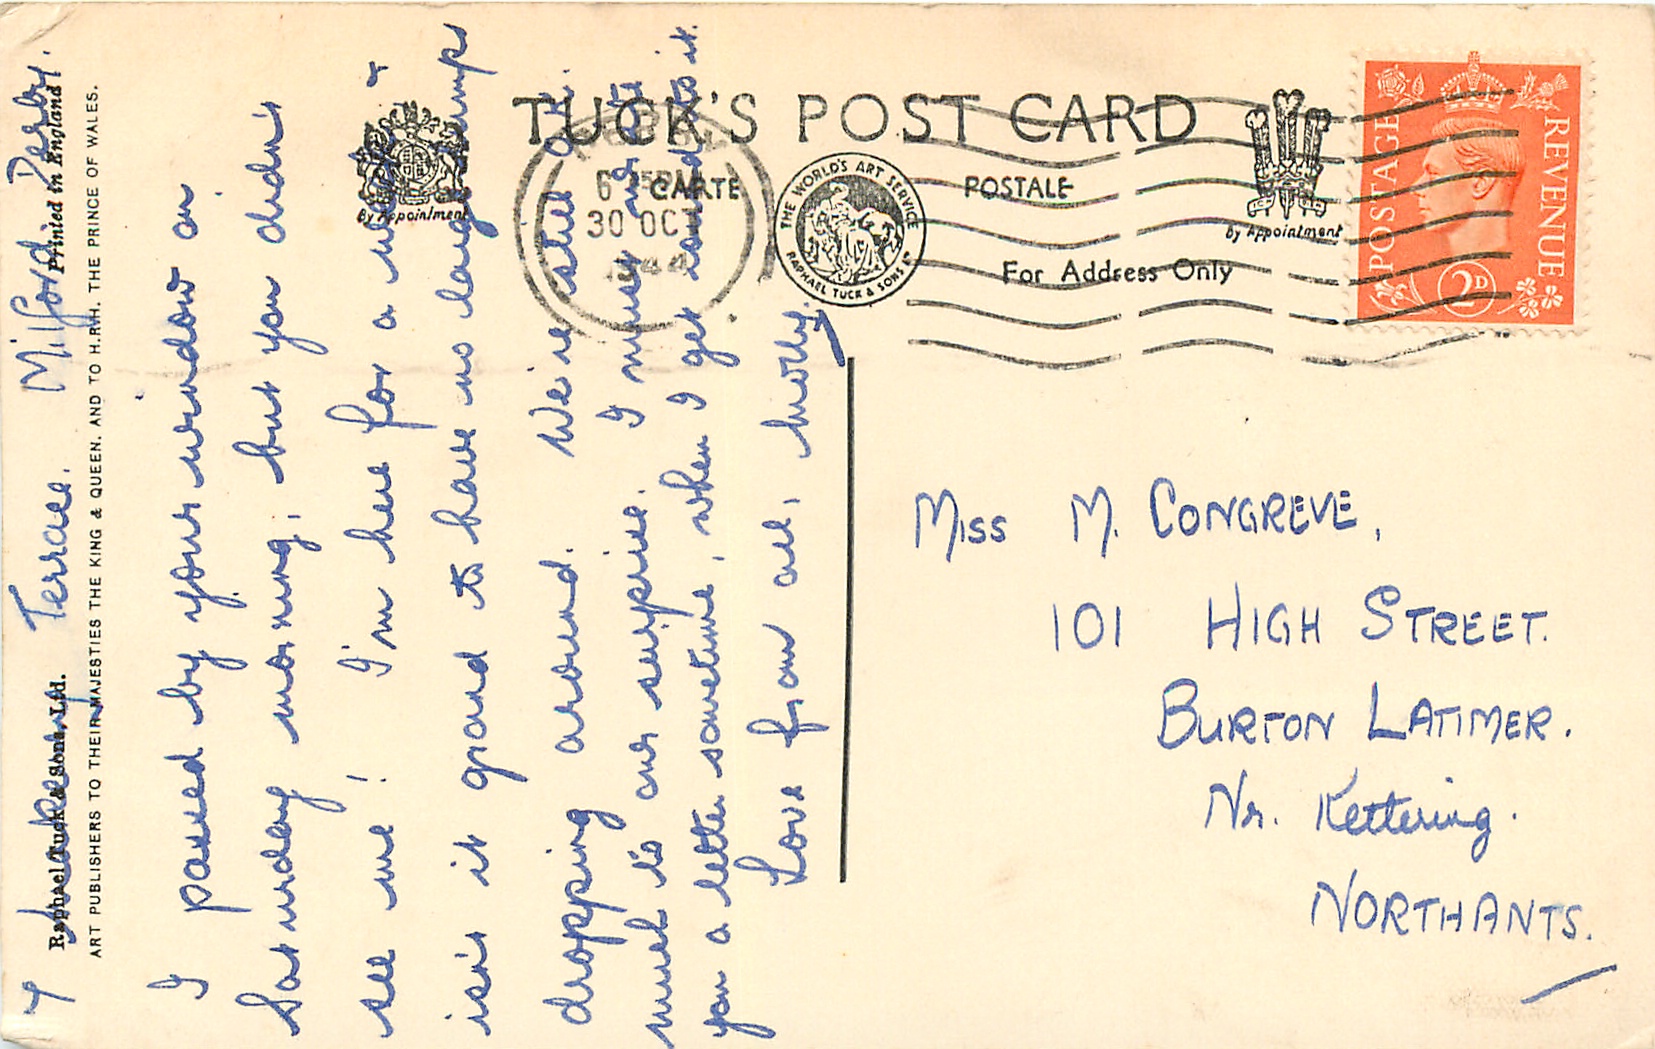 TUCK'S POST CARD
CARTE POSTALE
For Address Only
By Appointment
By Appointment
THE WORLD'S ART SERVICE
RAPHAEL TUCK & SONS LD
6 15PM
30 OCT
POSTAGE
REVENUE
2D
Raphael Tuck & Sons, Ltd.
Printed in England
ART PUBLISHERS TO THEIR MAJESTIES THE KING & QUEEN, AND TO H.R.H. THE PRINCE OF WALES.
Terrace. Milford. Derby.
I passed by your window on
Saturday morning, but you didn't
see me! I'm here for a week &
isn't it grand to have no lamps
dropping around. We're still all
much to our surprise. I must write
you a letter sometime, when I get round to it.
Love from all, Molly.
MISS M. CONGREVE,
101 HIGH STREET.
BURTON LATIMER.
Nr. Kettering.
NORTHANTS.